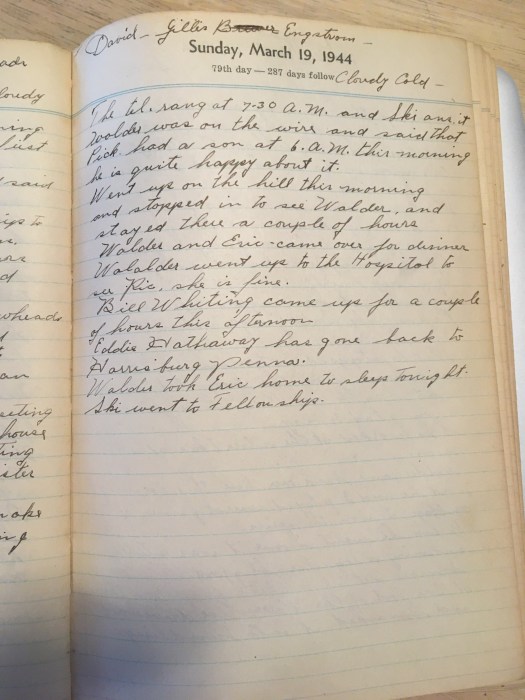 David - Gilles Engstrom -
Sunday, March 19, 1944
79th day — 287 days follow Cloudy Cold -
The tel. rang at 7-30 A.M. and Ski ans. it
Walder was on the wire and said that
Rick had a son at 6. A.M. this morning
he is quite happy about it.
Went up on the hill this morning
and stopped in to see Walder, and
stayed there a couple of hours
Walder and Eric came over for dinner
Walalder went up to the Hospital to
see Ric, she is fine.
Bill Whiting came up for a couple
of hours this afternoon
Eddie Hathaway has gone back to
Harrisburg Penna.
Walder took Eric home to sleep tonight.
Ski went to Fellowship.
oudy
said
ings to
wheads
an
eting
house
ting
ister
make